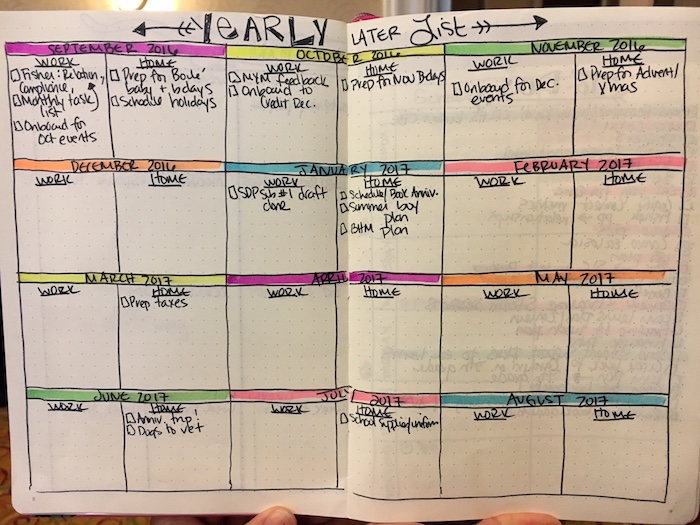 YEARLY LATER LIST
SEPTEMBER 2016
WORK
Fisher: Relation,
Compliance,
Monthly task
list
Onboard for
Oct events
HOME
Prep for
baby + bdays
Schedule holidays
OCTOBER 2016
WORK
MYM feedback
Onboard to
Credit Dec.
HOME
Prep for Nov Bdays
NOVEMBER 2016
WORK
Onboard for Dec.
events
HOME
Prep for Advent/
Xmas
DECEMBER 2016
WORK
HOME
JANUARY 2017
WORK
SDP Sub #1 draft
done
HOME
Schedule/Book Anniv.
Summer
plan
BHM plan
FEBRUARY 2017
WORK
HOME
MARCH 2017
WORK
HOME
Prep taxes
APRIL 2017
WORK
HOME
MAY 2017
WORK
HOME
JUNE 2017
WORK
HOME
Anniv. trip!
Dogs to vet
JULY 2017
WORK
HOME
School supplies/uniform
AUGUST 2017
WORK
HOME